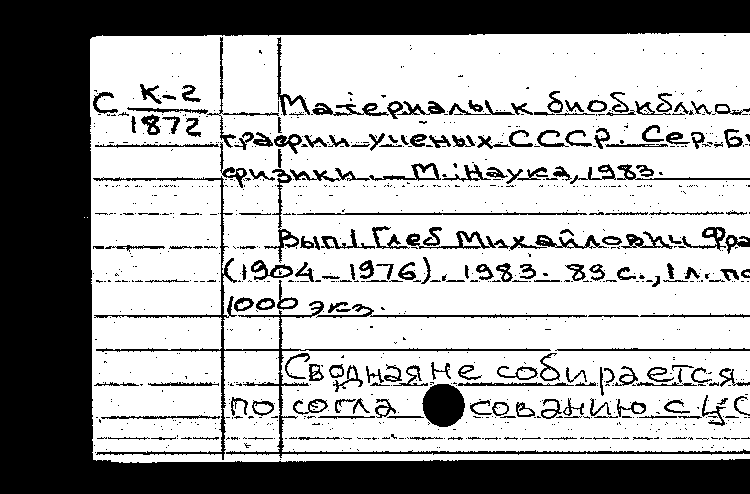 С К-2 Материалы к биобиблио-
1872 графии ученых СССР. Сер. Би
физики. — М.: Наука, 1983.
Вып. 1. Глеб Михайлович Фра
(1904—1976). 1983. 83 с., 1 л. по
1000 экз.
Сводная не собирается
по согласованию с ЦС